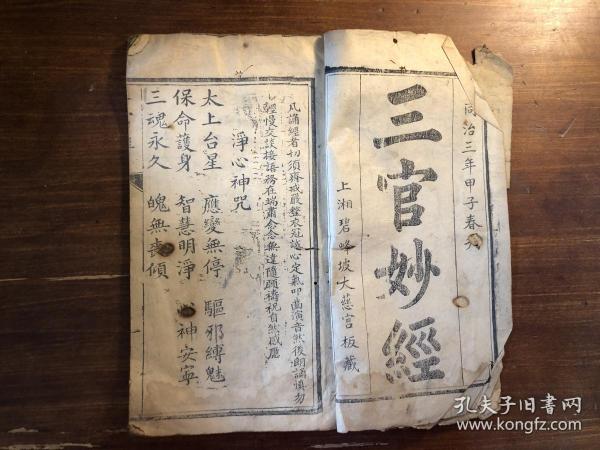 同治三年甲子春
三官妙經
上湘碧峰坡大慈宮板藏
凡誦經者切須齋戒嚴整衣冠誠心定氣叩齒演音然後朗誦慎勿
輕慢交談接語務在端肅念念無違隨願禱祝自然感應
淨心神咒
太上台星 應變無停 驅邪縛魅
保命護身 智慧明淨 心神安寧
三魂永久 魄無喪傾
孔夫子旧書网
www.kongfz.com